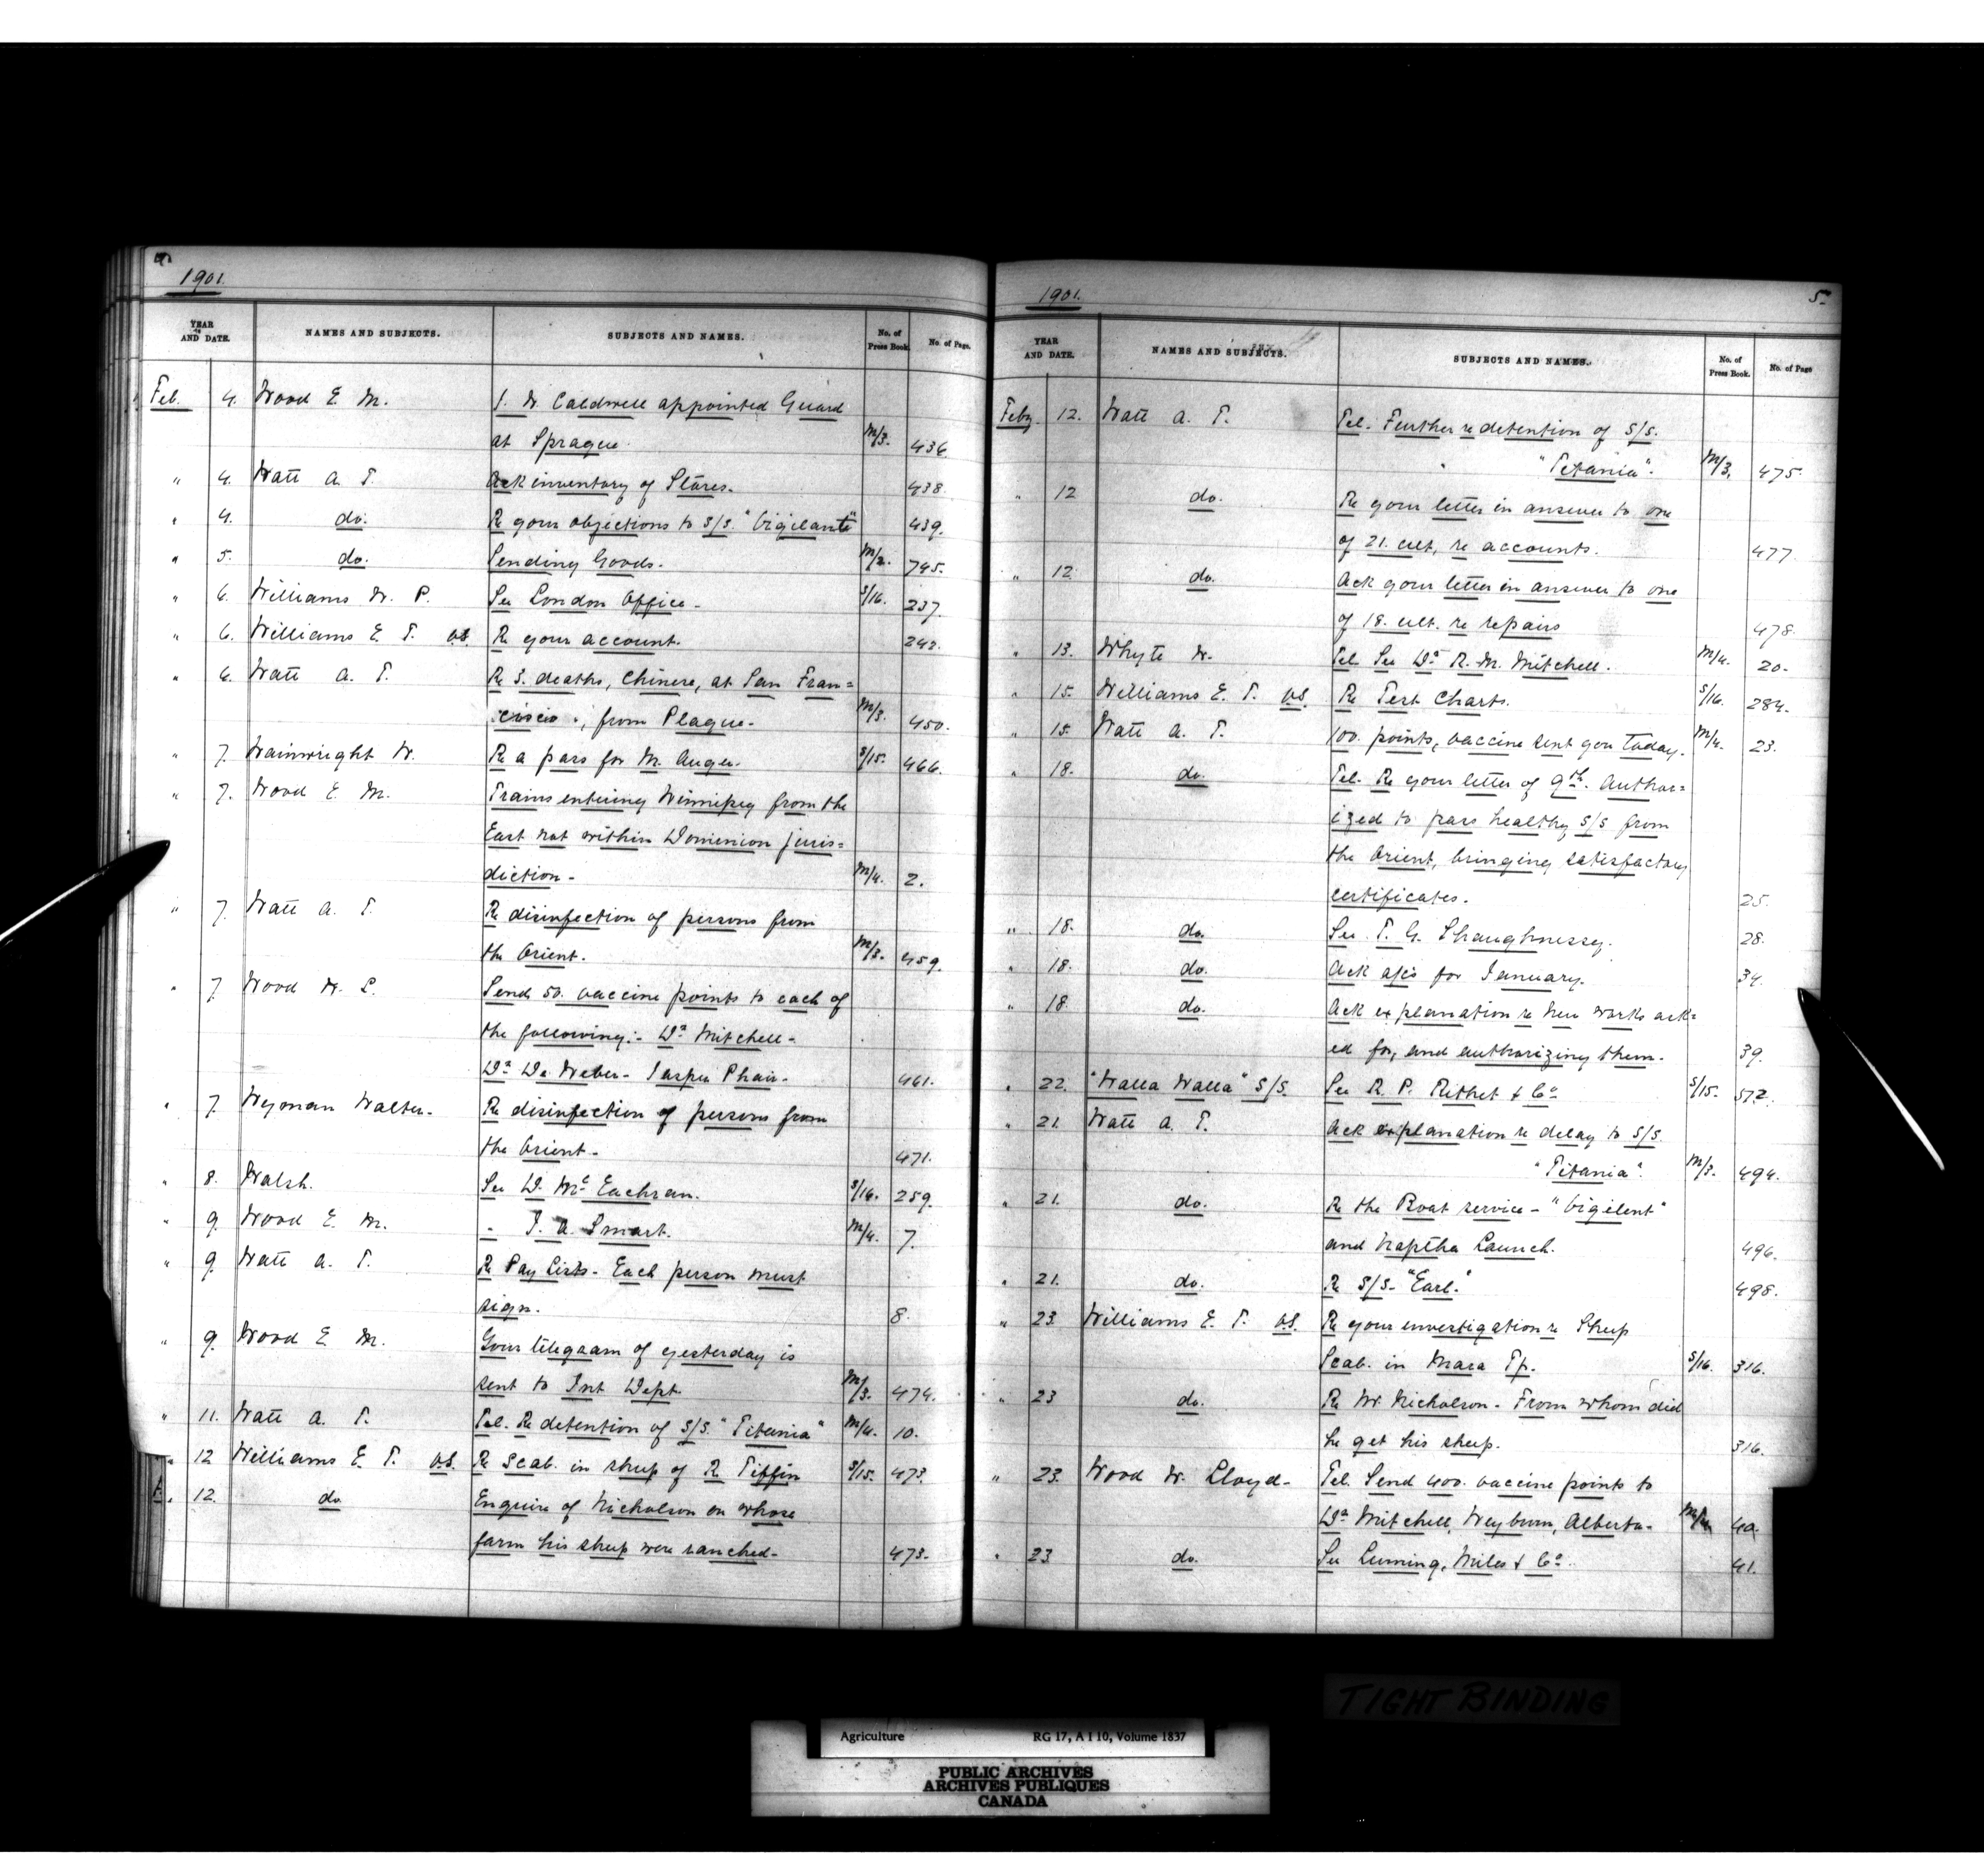 1901.
YEAR AND DATE. NAMES AND SUBJECTS. SUBJECTS AND NAMES. No. of Press Book. No. of Page.
Feb. 4. Wood E. M. J. W. Caldwell appointed Guard
at Sprague. M/3. 436
" 4. Watt A. T. Ack inventory of Stores. 438.
" 4. do. Re your objections to S/S. "Vigilante" 439.
" 5. do. Sending Goods. M/2. 745.
" 6. Williams W. P. See London Office. S/16. 237.
" 6. Williams E. T. V.S. Re your account. 242.
" 6. Watt A. T. Re 3. deaths, Chinese, at San Fran=
cisco, from Plague. M/3. 450.
" 7. Wainwright W. Re a pass for M. Auger. S/15. 466.
" 7. Wood E. M. Trains entering Winnipeg from the
East not within Dominion juris=
diction. M/4. 2.
" 7. Watt A. T. Re disinfection of persons from
the Orient. M/3. 459.
" 7. Wood W. L. Send 50. vaccine points to each of
the following:- Dr Mitchell-
Dr De Weber- Jasper Phair. 461.
" 7. Wyman Walter. Re disinfection of persons from
the Orient. 471.
" 8. Walsh. See D. McEachran. S/16. 259.
" 9. Wood E. M. " J. A. Smart. M/4. 7.
" 9. Watt A. T. Re Pay Lists- Each person must
sign. 8.
" 9. Wood E. M. Your telegram of yesterday is
sent to Int Dept. M/3. 474.
" 11. Watt A. T. Tel. Re detention of S/S. "Titania" M/4. 10.
" 12 Williams E. T. V.S. Re Scab. in sheep of R. Tiffin S/15. 473.
" 12. do Enquire of Nicholson on whose
farm his sheep were ranched. 473.
1901. 5.
YEAR AND DATE. NAMES AND SUBJECTS. SUBJECTS AND NAMES. No. of Press Book. No. of Page
Feby. 12. Watt A. T. Tel. Further re detention of S/S.
"Titania". M/3. 475.
" 12 do. Re your letter in answer to one
of 21. ult, re accounts. 477.
" 12. do. Ack your letter in answer to one
of 18. ult. re repairs 478.
" 13. Whyte W. Tel. See Dr R. M. Mitchell. M/4. 20.
" 15. Williams E. T. V.S. Re Test Charts. S/16. 284.
" 15. Watt A. T. 100. points, vaccine sent you today. M/4. 23.
" 18. do. Tel. Re your letter of 9th. Author=
ized to pass healthy S/S from
the Orient, bringing satisfactory
certificates. 25.
" 18. do. See T. G. Shaughnessy. 28.
" 18. do. Ack a/cs for January. 34.
" 18. do. Ack explanation re new works ask=
ed for, and authorizing them. 39.
" 22. "Walla Walla" S/S. See R. P. Rithet & Co S/15. 572.
" 21. Watt A. T. Ack explanation re delay to S/S.
"Titania". M/3. 494.
" 21. do. Re the Boat service- "Vigilent"
and Naptha Launch. 496.
" 21. do. Re S/S- "Earl." 498.
" 23. Williams E. T. V.S. Re your investigation re Sheep
Scab. in Mara Tp. S/16. 316.
" 23 do. Re W. Nicholson- From whom did
he get his sheep. 316.
" 23. Wood W. Lloyd- Tel. Send 400. vaccine points to
Dr Mitchell, Weyburn, Alberta. M/4 40.
" 23 do. See Leming, Miles & Co. 41.
TIGHT BINDING
Agriculture RG 17, A I 10, Volume 1837
PUBLIC ARCHIVES
ARCHIVES PUBLIQUES
CANADA